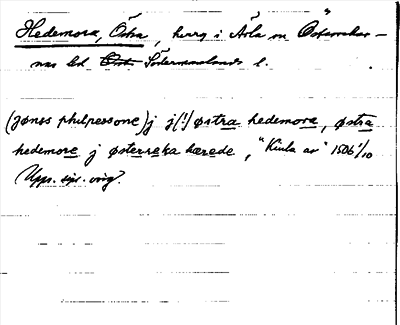 Hedemora, Östra, herrg i Ärla sn Österrekar-
nas hd Södermanlands l.
(jønss philpessone) j j(!) østra hedemora, østra
hedemore j østerreka hærede, "Kiula av" 1506 1/10
Upps. sjs. orig.